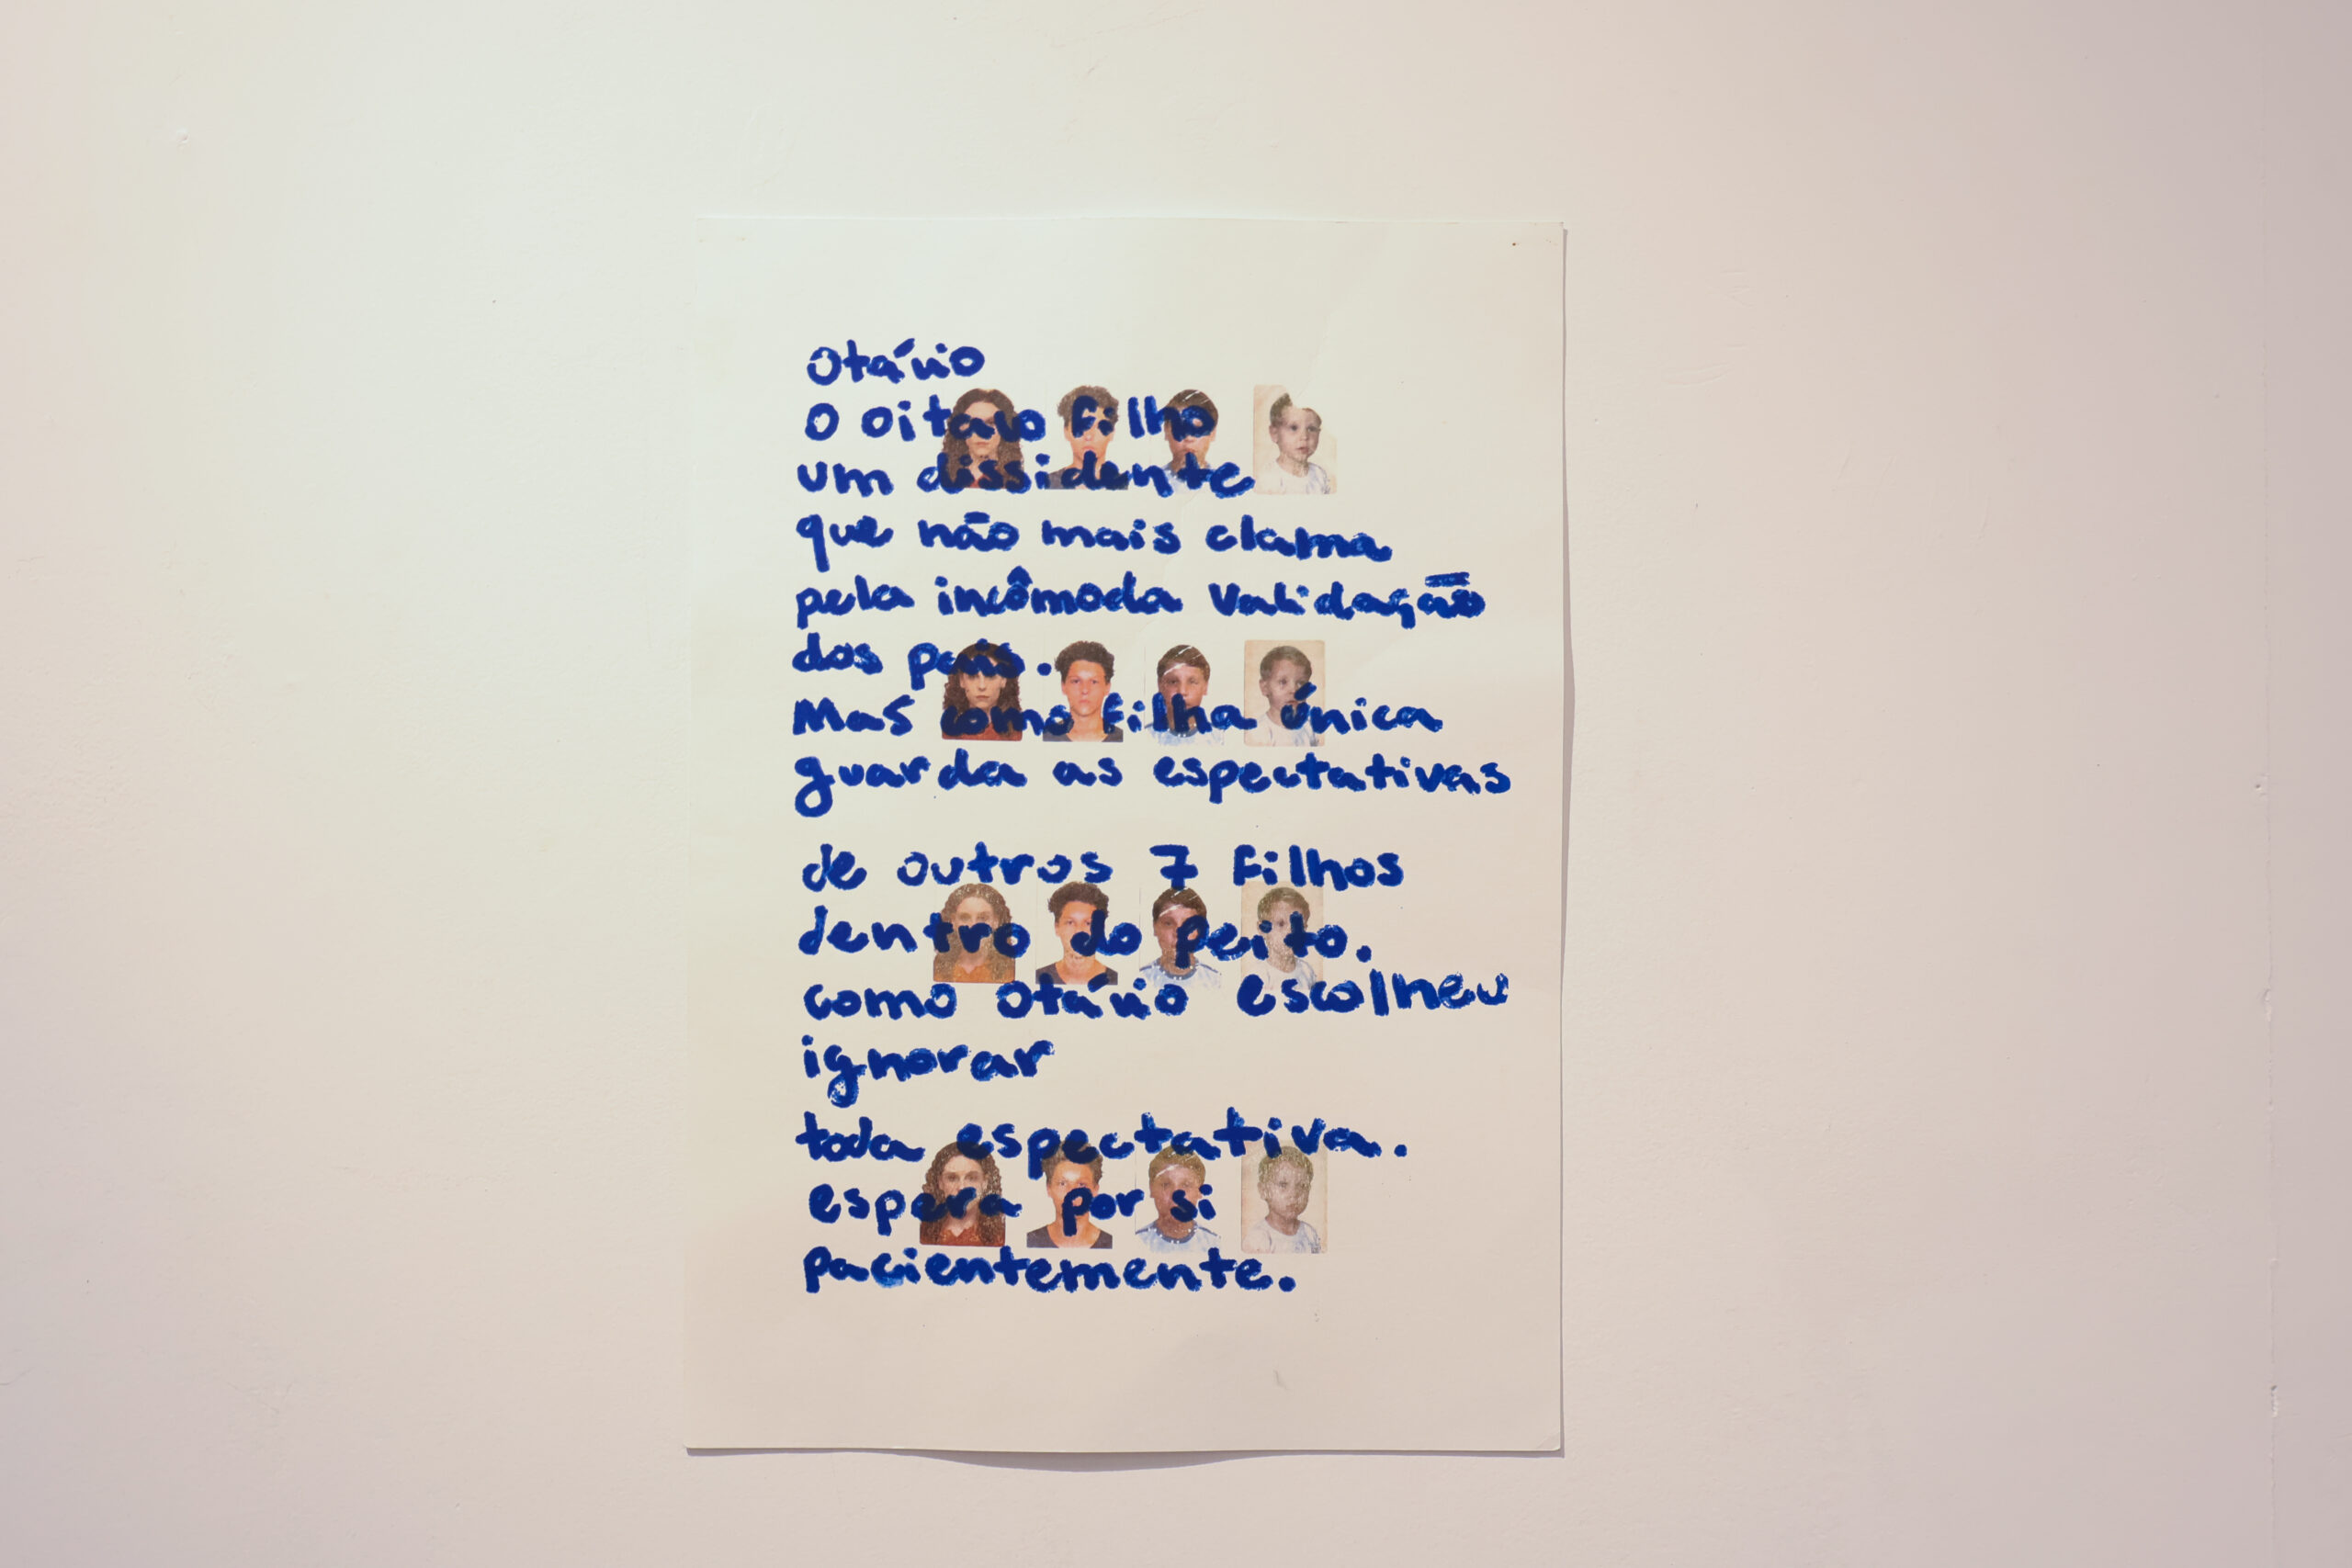 Otávio
O oitavo filho
um dissidente
que não mais clama
pela incômoda validação
dos pais.
Mas como filha única
guarda as espectativas
de outros 7 filhos
dentro do peito.
como Otávio escolheu
ignorar
toda espectativa.
espera por si
pacientemente.